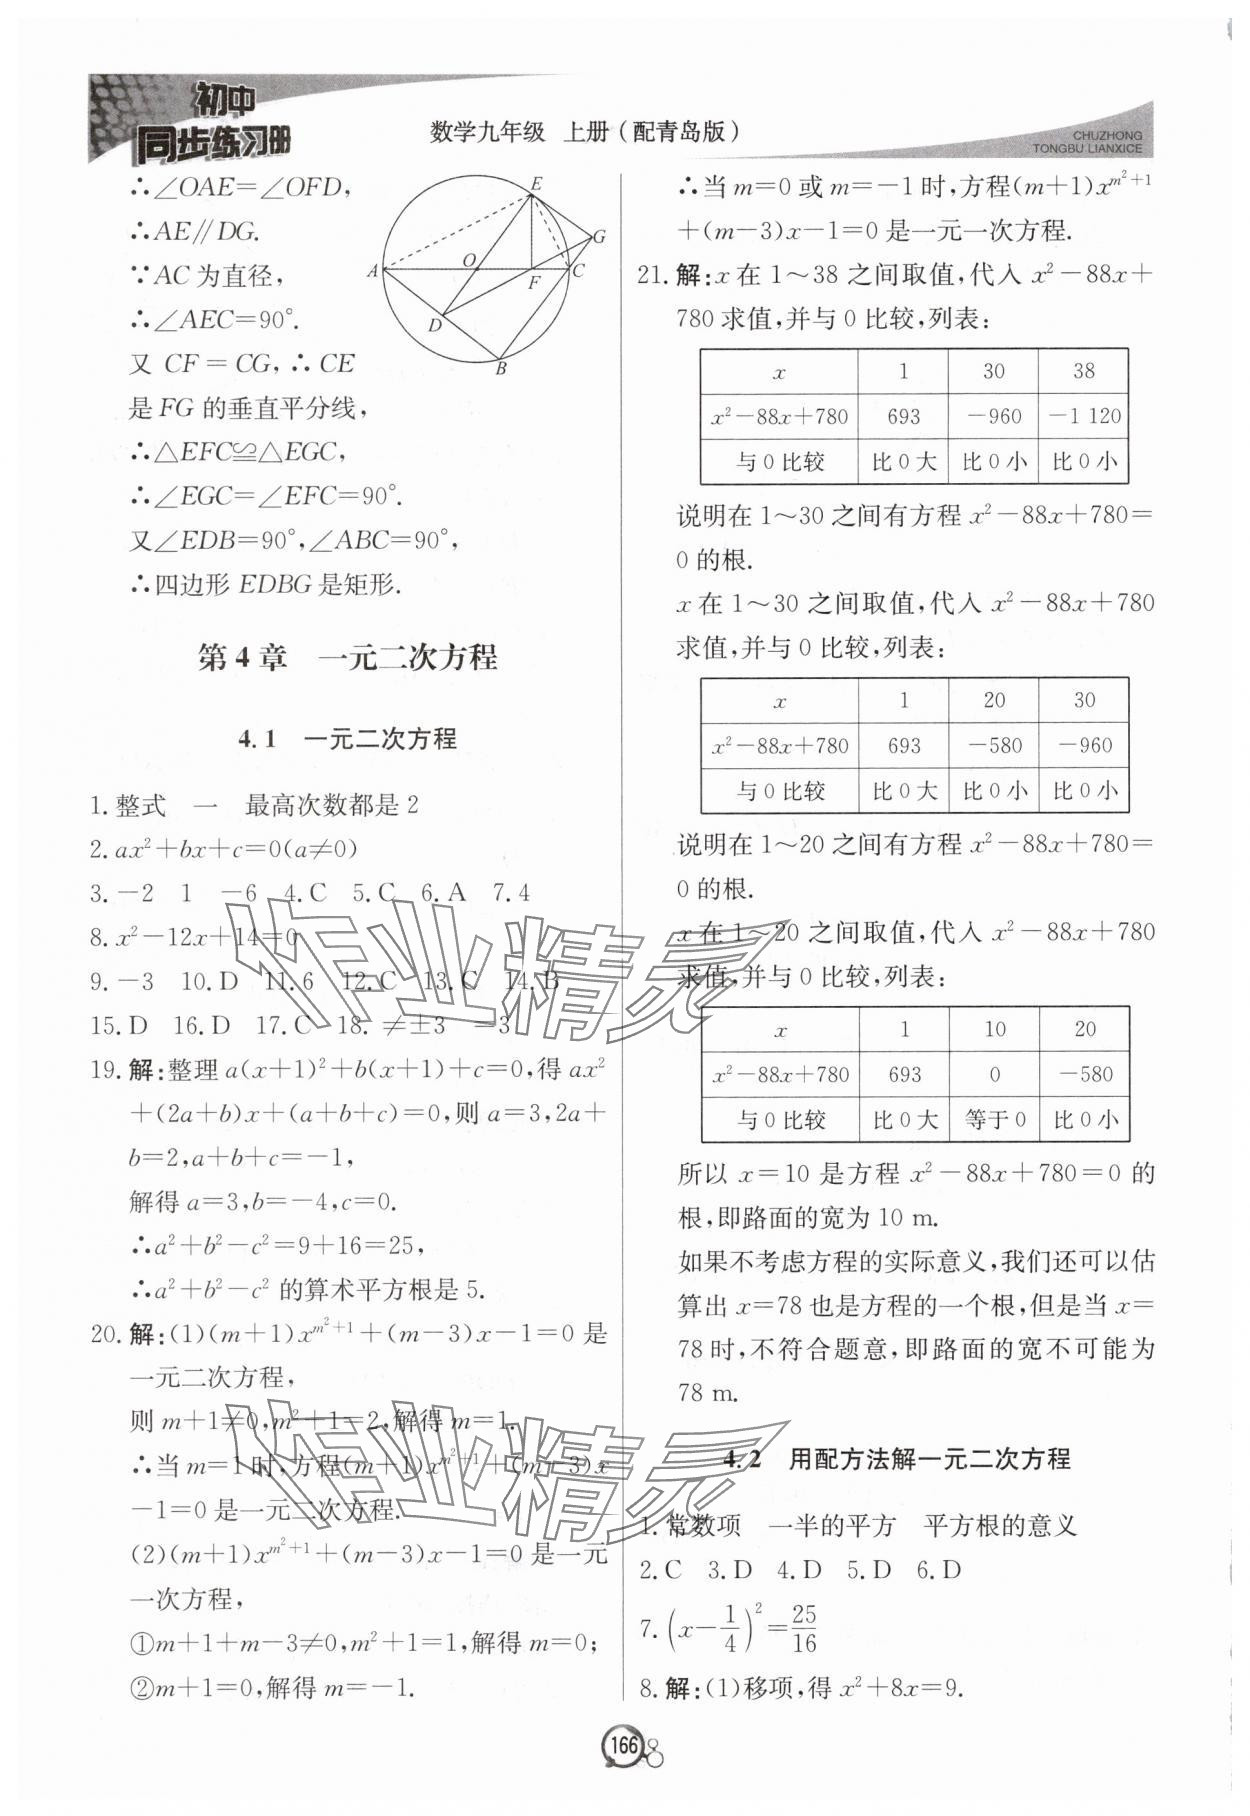 初中
同步练习册
数学九年级 上册(配青岛版)
CHUZHONG
TONGBU LIANXICE
∴∠OAE=∠OFD,
∴AE∥DG.
∵AC为直径,
∴∠AEC=90°.
又 CF=CG,∴CE
是FG的垂直平分线,
∴△EFC≌△EGC,
∴∠EGC=∠EFC=90°.
又∠EDB=90°,∠ABC=90°,
∴四边形EDBG是矩形.
E
G
A
O
F
C
D
B
第4章 一元二次方程
4.1 一元二次方程
1.整式 一 最高次数都是2
2.ax²+bx+c=0(a≠0)
3.-2 1 -6 4.C 5.C 6.A 7.4
8.x²-12x+14=0
9.-3 10.D 11.6 12.C 13.C 14.B
15.D 16.D 17.C 18.≠±3 -3
19.解:整理a(x+1)²+b(x+1)+c=0,得ax²
+(2a+b)x+(a+b+c)=0,则a=3,2a+
b=2,a+b+c=-1,
解得a=3,b=-4,c=0.
∴a²+b²-c²=9+16=25,
∴a²+b²-c²的算术平方根是5.
20.解:(1)(m+1)x^{m²+1}+(m-3)x-1=0是
一元二次方程,
则m+1≠0,m²+1=2,解得m=1.
∴当m=1时,方程(m+1)x^{m²+1}+(m-3)x
-1=0是一元二次方程.
(2)(m+1)x^{m²+1}+(m-3)x-1=0是一元
一次方程,
①m+1+m-3≠0,m²+1=1,解得m=0;
②m+1=0,解得m=-1.
∴当m=0或m=-1时,方程(m+1)x^{m²+1}
+(m-3)x-1=0是一元一次方程.
21.解:x在1~38之间取值,代入x²-88x+
780求值,并与0比较,列表:
x 1 30 38
x²-88x+780 693 -960 -1 120
与0比较 比0大 比0小 比0小
说明在1~30之间有方程x²-88x+780=
0的根.
x在1~30之间取值,代入x²-88x+780
求值,并与0比较,列表:
x 1 20 30
x²-88x+780 693 -580 -960
与0比较 比0大 比0小 比0小
说明在1~20之间有方程x²-88x+780=
0的根.
x在1~20之间取值,代入x²-88x+780
求值,并与0比较,列表:
x 1 10 20
x²-88x+780 693 0 -580
与0比较 比0大 等于0 比0小
所以x=10是方程x²-88x+780=0的
根,即路面的宽为10 m.
如果不考虑方程的实际意义,我们还可以估
算出x=78也是方程的一个根,但是当x=
78时,不符合题意,即路面的宽不可能为
78 m.
4.2 用配方法解一元二次方程
1.常数项 一半的平方 平方根的意义
2.C 3.D 4.D 5.D 6.D
7.(x-1/4)²=25/16
8.解:(1)移项,得x²+8x=9.
作业精灵
作业精灵
166